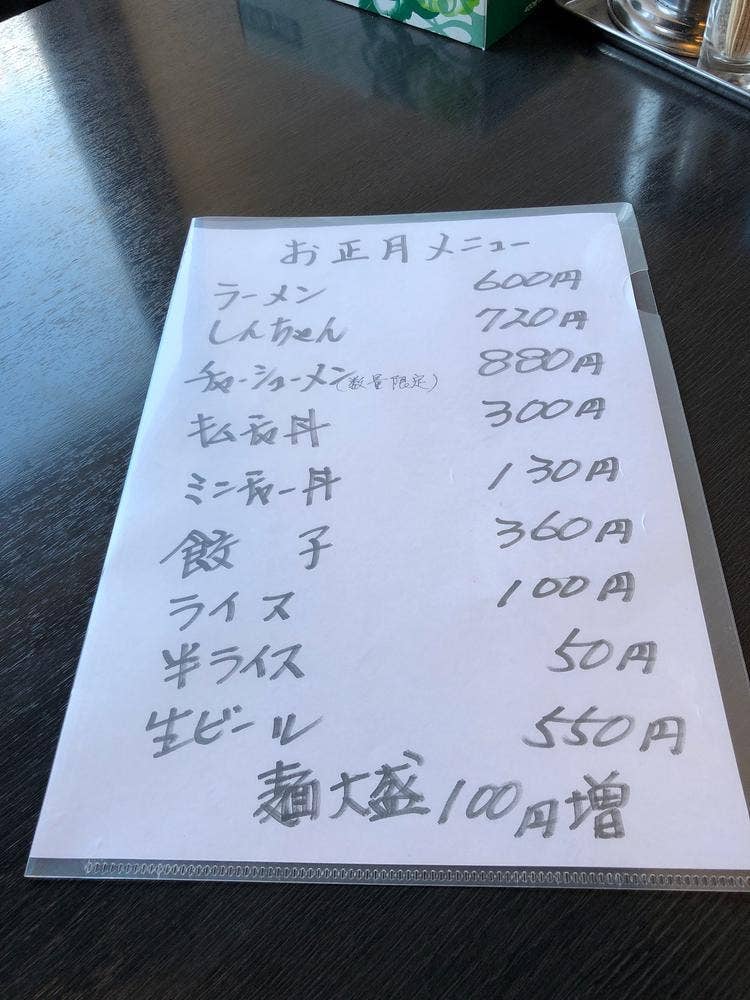 お正月メニュー
ラーメン 600円
しんちゃん 720円
チャーシューメン(数量限定) 880円
キムチャ丼 300円
ミニチャー丼 130円
餃子 360円
ライス 100円
半ライス 50円
生ビール 550円
麺大盛100円増